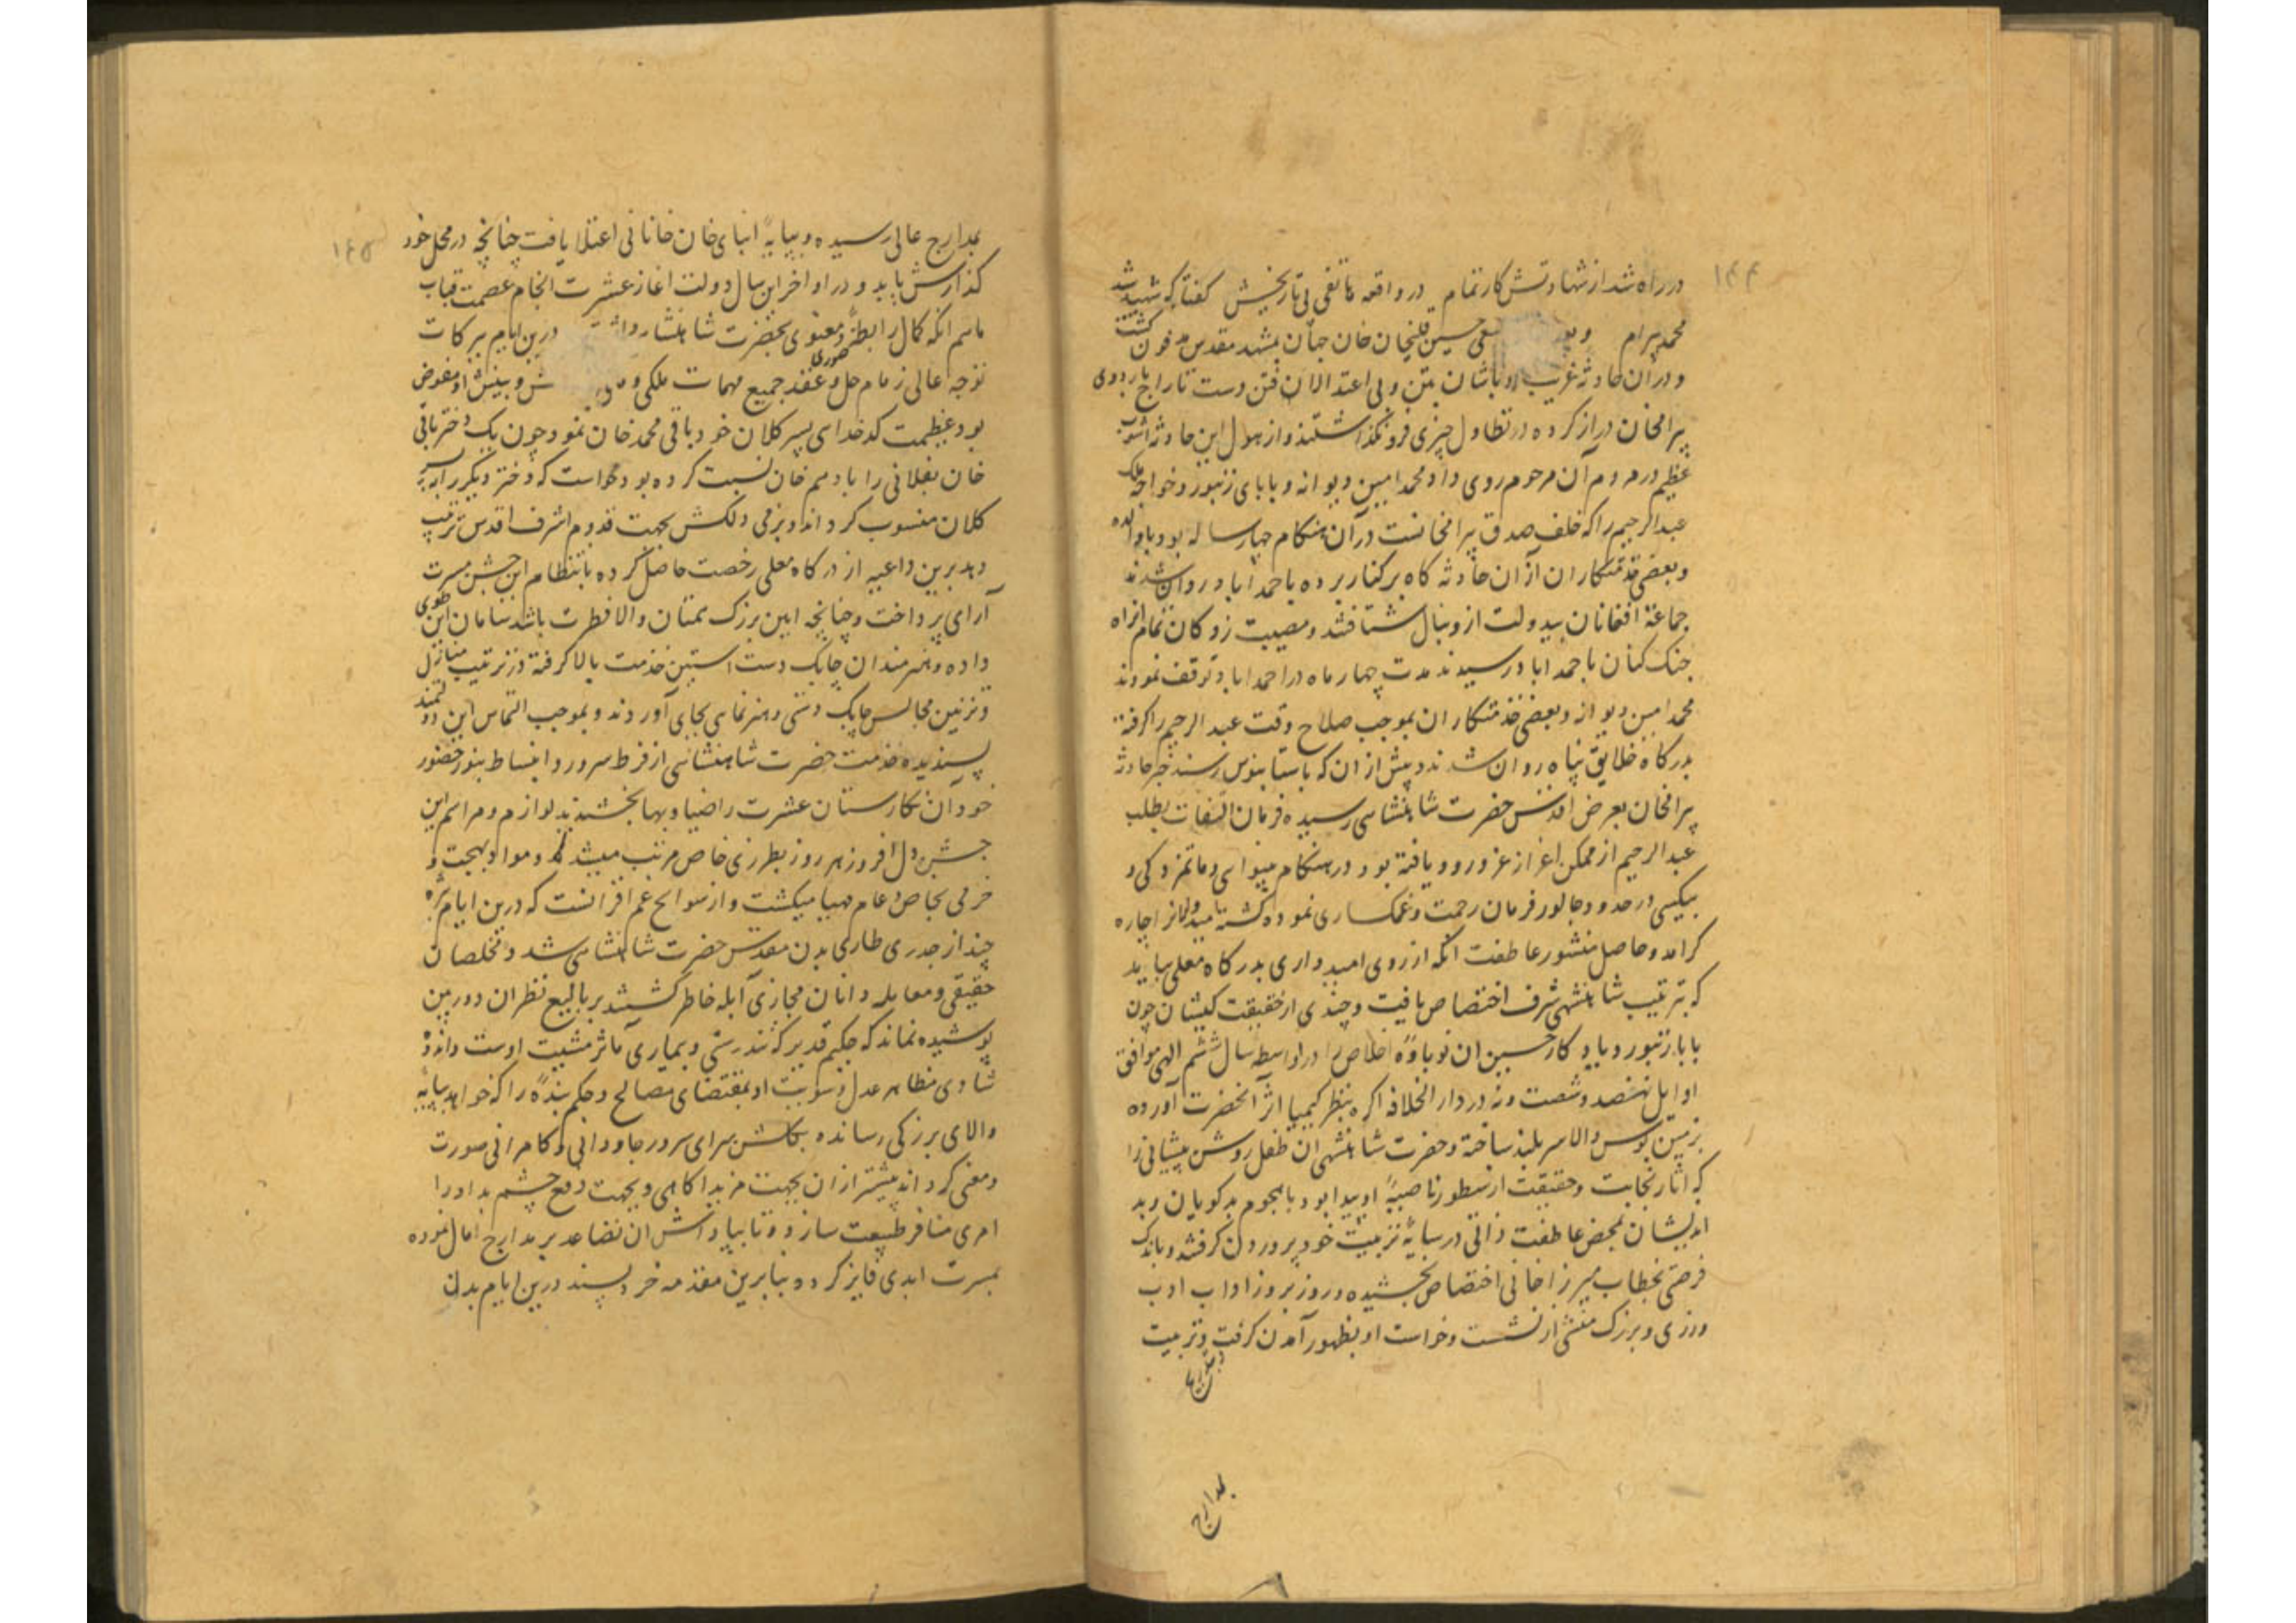 ۱۴۴
در راه شد از شهادتش کار تمام در واقعه هاتفی پی تاریخش گفتا که شهید شد
محمد بیرام حسین قلیخان خان جهان بمشهد مقدس مدفون گشت
و در آن حادثه غریب اوباشان بی اعتدالان فتن دست تاراج باردوی
بیرامخان دراز کرده در تطاول چیزی فرونگذاشتند و از هول این حادثه آشوب
عظیم در مردم آن مرحوم روی داد محمد امین دیوانه و بابای زنبور و خواجه ملک
عبدالرحیم را که خلف صدق بیرامخانست در آن هنگام چهار ساله بود با والده
و بعضی خدمتکاران از آن حادثه گاه برکنار برده باحمد اباد روان شدند
جماعة افغانان بیدولت از دنبال شتافتند و مصیبت زدگان تمام راه
جنگ کنان باحمد اباد رسیدند مدت چهار ماه در احمد اباد توقف نمودند
محمد امین دیوانه و بعضی خدمتکاران بموجب صلاح وقت عبد الرحیم را گرفته
بدرگاه خلایق پناه روان شدند و پیش از آن که باستانبوس رسند خبر حادثه
بیرامخان بعرض اقدس حضرت شاهنشاهی رسیده فرمان التفات بطلب
عبد الرحیم از ممکن اعزاز عز ورود یافته بود در هنگام بینوایی و ماتمزدگی و
بیکسی در حدود جالور فرمان رحمت و غمگساری نموده چاره
گر امد و حاصل منشور عاطفت انکه از روی امیدواری بدرگاه معلی بیاید
که بتربیت شاهنشهی شرف اختصاص یافت و چندی از حقیقت کیشان چون
بابا زنبور و یادگار حسین ان نوباوهٔ اخلاص را در اواسط سال ششم الهی موافق
اوایل نهصد و شصت و نه در دار الخلافه اگره بنظر کیمیا اثر انحضرت آورده
بزمین بوس والا سربلند ساخته و حضرت شاهنشهی ان طفل روشن پیشانی را
که اثار نجابت و حقیقت از سطور ناصیهٔ او پیدا بود با هجوم بدگویان و بد
اندیشان بمحض عاطفت ذاتی در سایهٔ تربیت خود پروردن گرفتند و باندک
فرصتی بخطاب میرزا خانی اختصاص بخشیده و روز بروز اداب ادب
ورزی و بزرگ منشی از نشست و خواست او بظهور آمدن گرفت و تربیت
بمدارج
۱۴۵
بمدارج عالی رسیده و بپایهٔ انبای خان خانانی اعتلا یافت چنانچه در محل خود
گذارش یابد و در اواخر این سال دولت اغاز عشرت انجام عصمت قباب
ماهم انکه کمال رابطهٔ صوری و معنوی بحضرت شاهنشاه درین ایام ببرکات
توجه عالی زمام حل و عقد جمیع مهمات ملکی و بینش او مفوض
بود عزیمت کدخدایی پسر کلان خود باقی محمد خان نمود چون یک دختر باقی
خان بقلانی را با ادهم خان نسبت کرده بود میخواست که دختر دیگر را به پسر
کلان منسوب گرداند و بزمی دلکش بجهت قدوم اشرف اقدس ترتیب
دهد برین داعیه از درگاه معلی رخصت حاصل کرده بانتظام این جشن مسرت
آرای پرداخت و چنانچه ایین بزرگ همتان والا فطرت باشد سامان این طوی
داده و هنرمندان چابک دست استین خدمت بالا گرفته در ترتیب منازل
و تزیین مجالس چابک دستی و هنر نمایی بجای آوردند و بموجب التماس این دولتمند
پسندیده خدمت حضرت شاهنشاهی از فرط سرور و انبساط بنور حضور
خود آن نگارستان عشرت را ضیا و بها بخشیدند لوازم و مراسم این
جشن دل افروز هر روز بطرزی خاص مرتب میشد و مواد بهجت و
خرمی بخاص و عام مهیا میگشت و از سوانح غم افزا انست که درین ایام
چند از جدری طاری بدن مقدس حضرت شاهنشاهی شد و مخلصان
حقیقی و معامله دانان مجازی آبله خاطر گشتند بر بالیغ نظران دوربین
پوشیده نماند که حکیم قدیر که تندرستی و بیماری مآثر مشیت اوست و اندوه
شادی مظاهر عدل و سویت او بمقتضای مصالح و حکم بندهٔ را که خواهد بپایه
والای بزرگی رسانده بگلشن سرای سرور جاودانی و کامرانی صورت
و معنی گرداند پیشتر از ان بجهت مزید اگاهی و بجهت دفع چشم بد او را
امری منافر طبیعت سازد و تا بپاداش ان تصاعد بر مدارج امال نموده
بمسرت ابدی فایز گردد بنابرین مقدمه خرد پسند درین ایام بدن